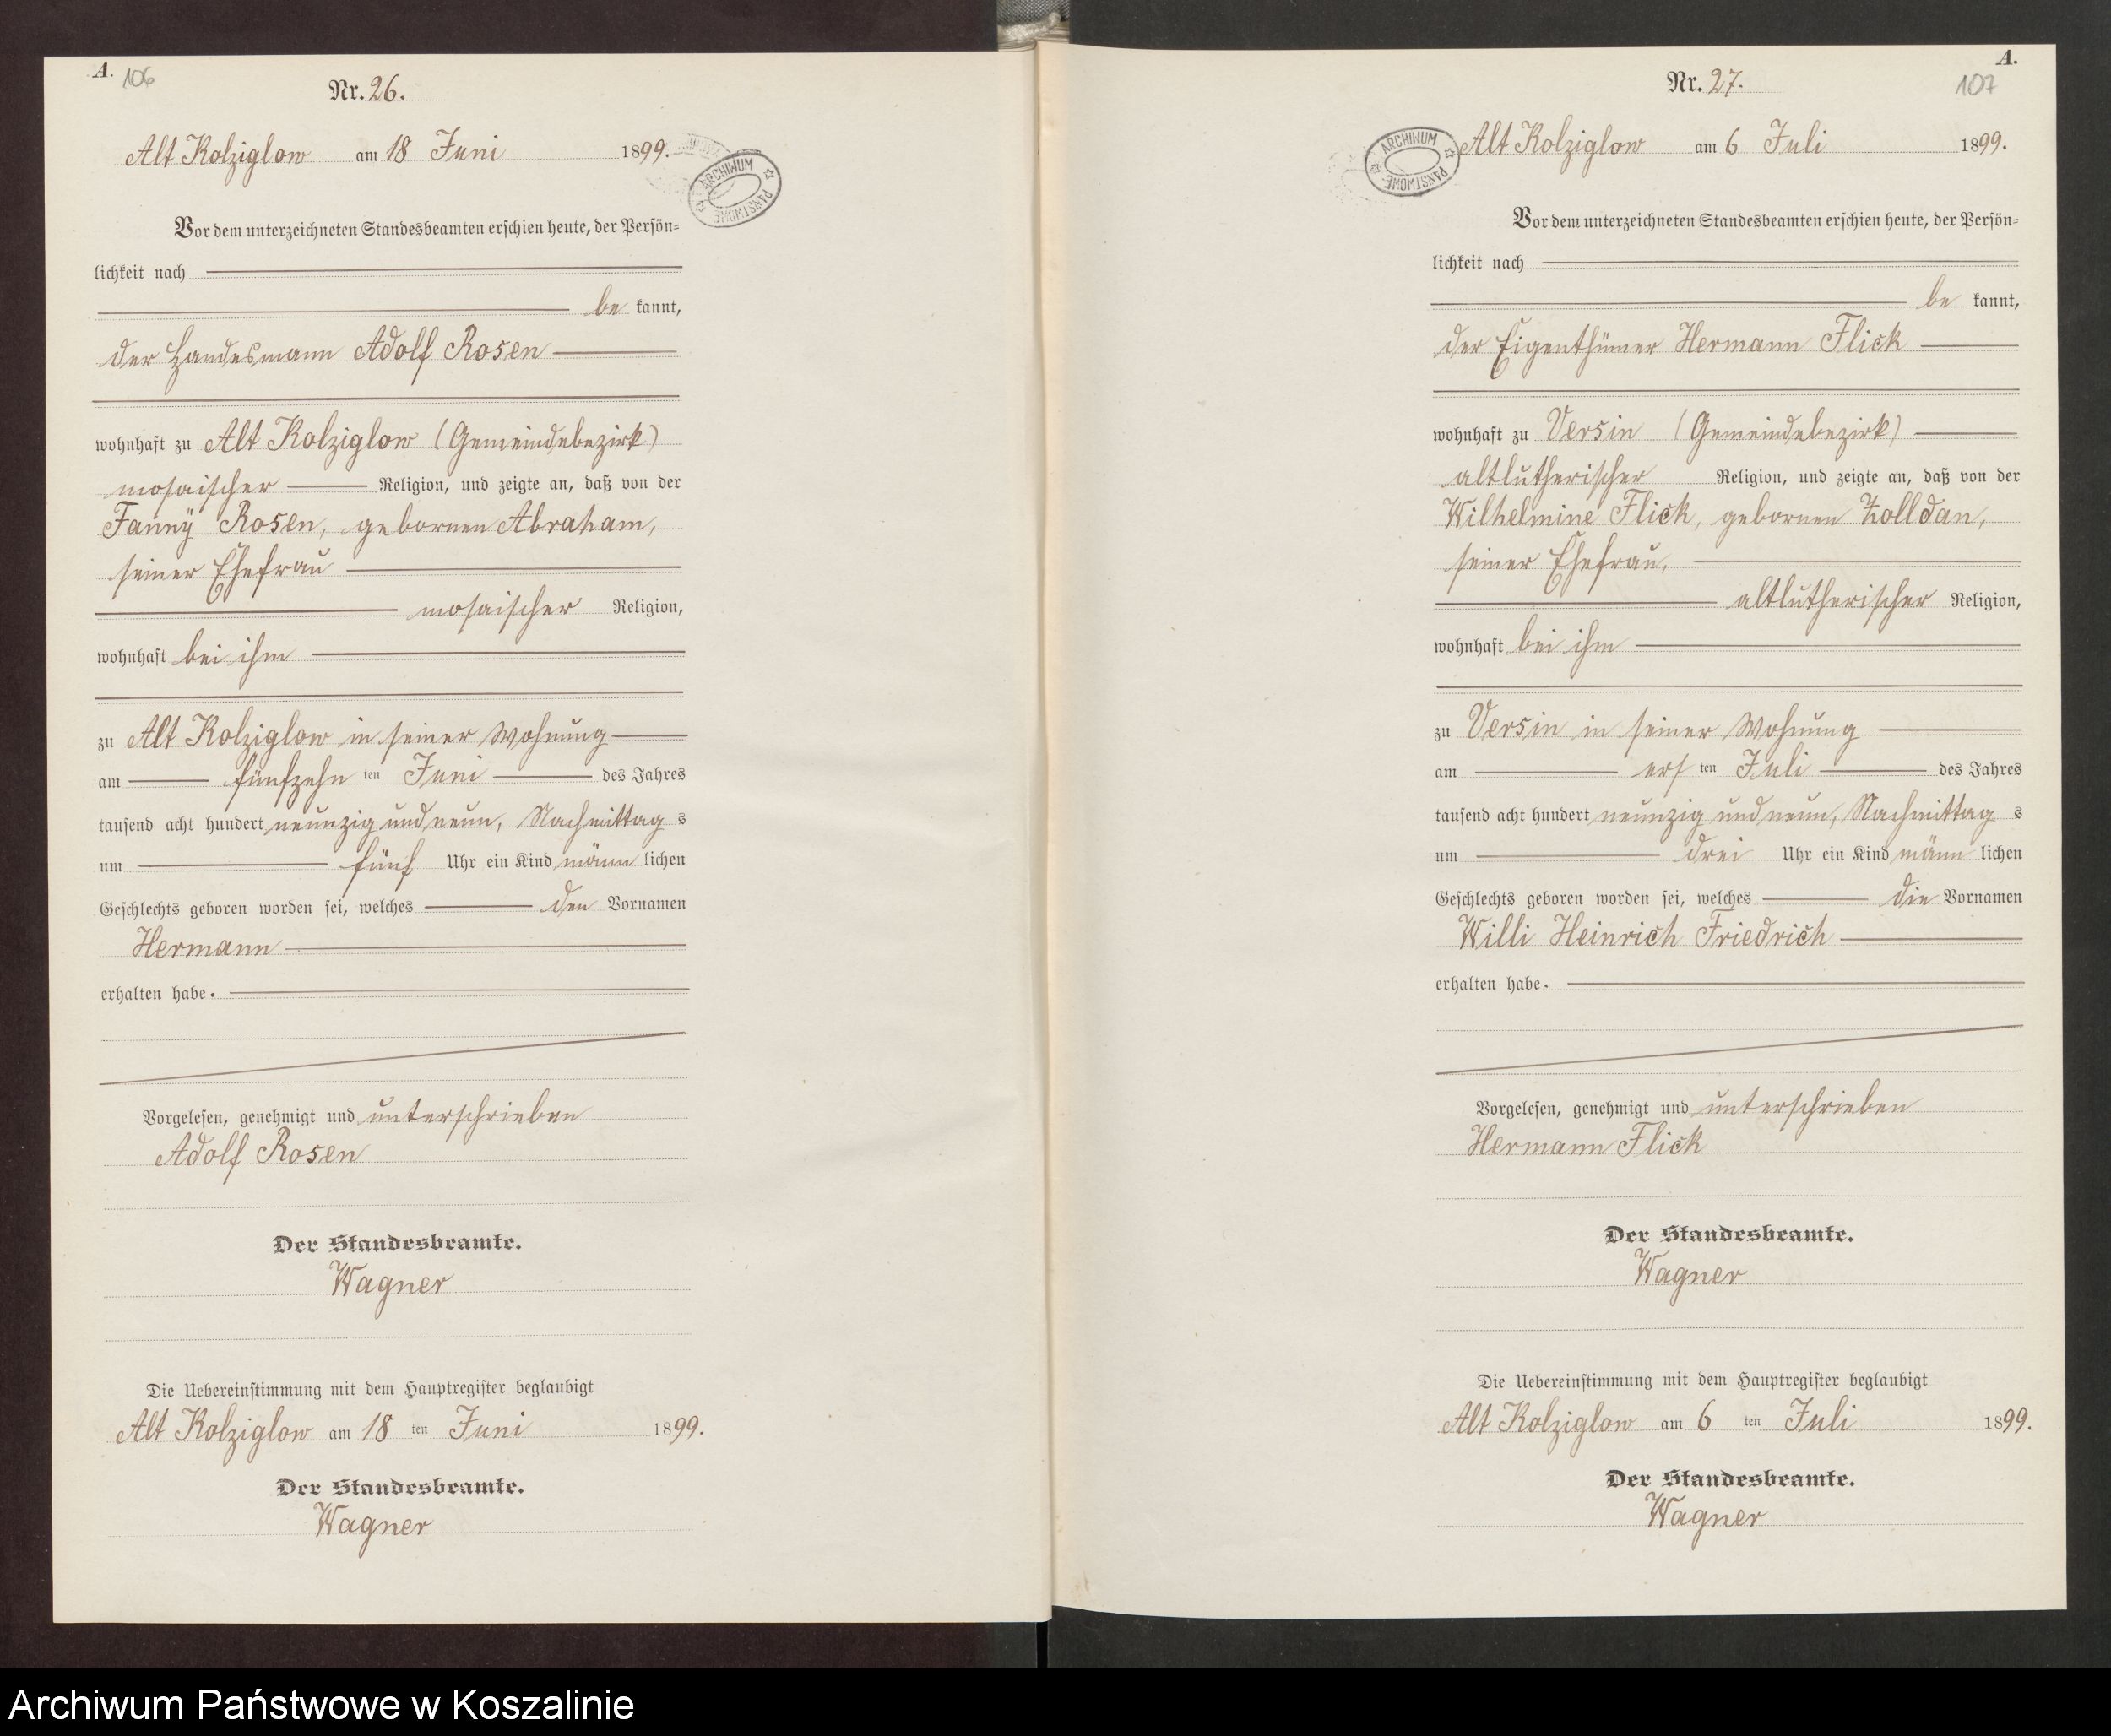 A. 106
Nr. 26.
Alt Kolziglow am 18 Juni 1899.
ARCHIWUM PAŃSTWOWE
Vor dem unterzeichneten Standesbeamten erschien heute, der Persön=
lichkeit nach
be kannt,
der Handesmann Adolf Rosen
wohnhaft zu Alt Kolziglow (Gemeindebezirk)
mosaischer Religion, und zeigte an, daß von der
Fanny Rosen, gebornen Abraham,
seiner Ehefrau
mosaischer Religion,
wohnhaft bei ihm
zu Alt Kolziglow in seiner Wohnung
am fünfzehn ten Juni des Jahres
tausend acht hundert neunzig und neun, Nachmittag s
um fünf Uhr ein Kind männ lichen
Geschlechts geboren worden sei, welches den Vornamen
Hermann
erhalten habe.
Vorgelesen, genehmigt und unterschrieben
Adolf Rosen
Der Standesbeamte.
Wagner
Die Uebereinstimmung mit dem Hauptregister beglaubigt
Alt Kolziglow am 18 ten Juni 1899.
Der Standesbeamte.
Wagner
A.
107
Nr. 27.
ARCHIWUM PAŃSTWOWE
Alt Kolziglow am 6 Juli 1899.
Vor dem unterzeichneten Standesbeamten erschien heute, der Persön=
lichkeit nach
be kannt,
der Eigenthümer Hermann Flick
wohnhaft zu Versin (Gemeindebezirk)
altlutherischer Religion, und zeigte an, daß von der
Wilhelmine Flick, gebornen Zolldan,
seiner Ehefrau,
altlutherischer Religion,
wohnhaft bei ihm
zu Versin in seiner Wohnung
am erst ten Juli des Jahres
tausend acht hundert neunzig und neun, Nachmittag s
um drei Uhr ein Kind männ lichen
Geschlechts geboren worden sei, welches die Vornamen
Willi Heinrich Friedrich
erhalten habe.
Vorgelesen, genehmigt und unterschrieben
Hermann Flick
Der Standesbeamte.
Wagner
Die Uebereinstimmung mit dem Hauptregister beglaubigt
Alt Kolziglow am 6 ten Juli 1899.
Der Standesbeamte.
Wagner
Archiwum Państwowe w Koszalinie